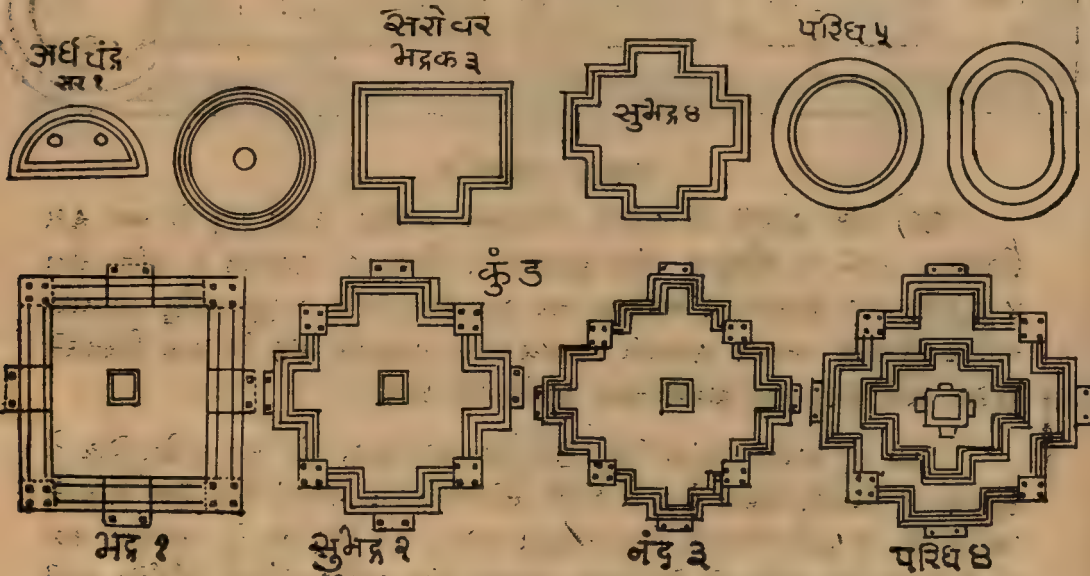 अर्धचंद्र
सर १
सरोवर
भद्रक ३
सुभद्र ४
परिघ ५
कुंड
भद्र १
सुभद्र २
नंद ३
परिघ ४